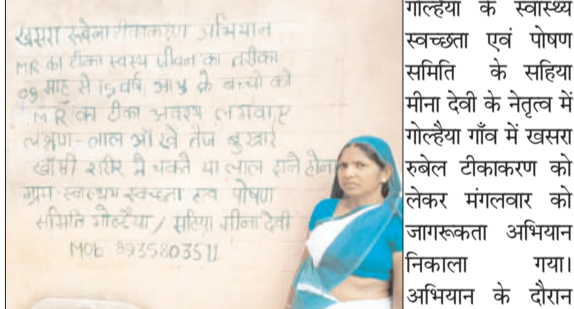 खसरा रूबेला टीकाकरण अभियान
MR का टीका स्वस्थ जीवन का तरीका
09 माह से 15 वर्ष आयु के बच्चो को
MR का टीका अवश्य लगवाए
लक्षण-लाल आँखे तेज बुखार
खाँसी शरीर मे चकते या लाल दाने होना
ग्राम-स्वास्थ्य स्वच्छता एव पोषण
समिति गोल्हैया / सहिया मीना देवी
MOb 8935803511
गोल्हैया के स्वास्थ्य
स्वच्छता एवं पोषण
समिति के सहिया
मीना देवी के नेतृत्व में
गोल्हैया गाँव में खसरा
रुबेल टीकाकरण को
लेकर मंगलवार को
जागरूकता अभियान
निकाला गया।
अभियान के दौरान